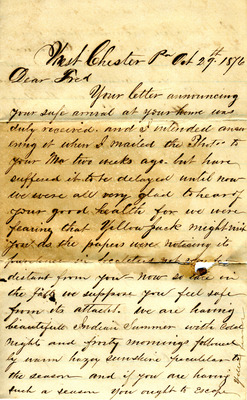 West Chester Pa Oct 29th. 1876
Dear Fred
Your letter announcing
your safe arrival at your home was
duly received. and I intended answ
ering it when I mailed the Photo. to
your Ma two weeks ago. but have
suffered it to be delayed until now
we were all very glad to hear of
your good health for we were
fearing that Yellow Jack might visit
you. as the papers were noticing its
in localities not
distant from you Now so late in
the fall we suppose you feel safe
from its attacks. We are having
beautiful Indian Summer with cold
nights and frosty mornings followed
by warm hazy sunshine peculiar to
the season and if you are having
such a season you ought to escape